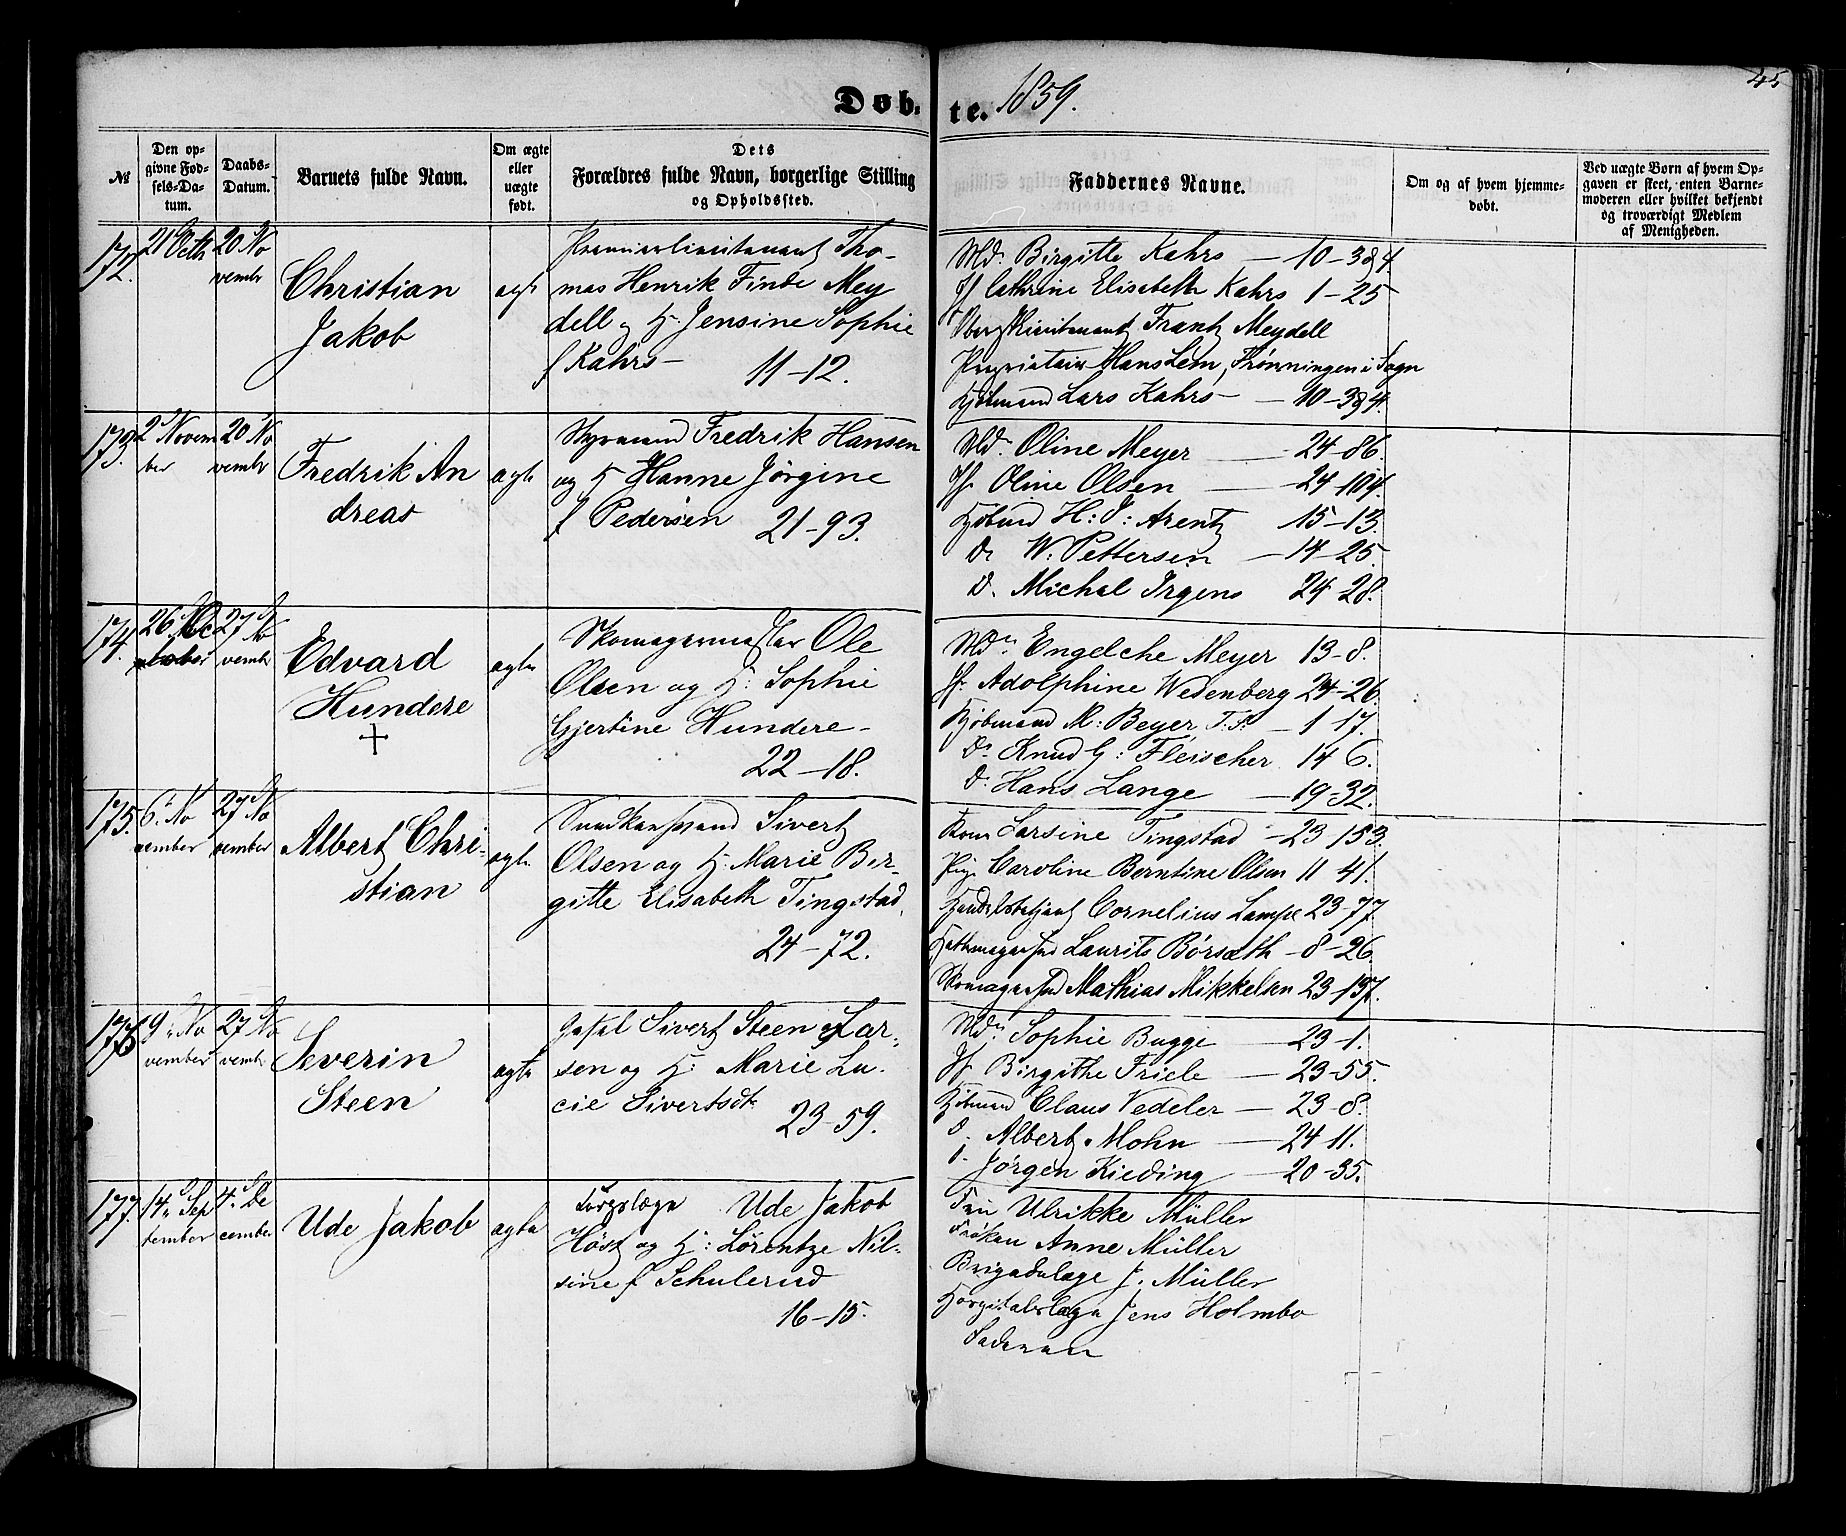 Døb-
te. 1859.
45
№
Den op-
givne Fød-
sels-Da-
tum.
Daabs-
Datum.
Barnets fulde Navn.
Om ægte
eller
uægte
født.
Dets
Forældres fulde Navn, borgerlige Stilling
og Opholdssted.
Faddernes Navne.
Om og af hvem hjemme-
døbt.
Ved uægte Børn af hvem Op-
gaven er skeet, enten Barne-
moderen eller hvilket bekjendt
og troværdigt Medlem
af Menigheden.
172.
21 Octb
20 No
vembr
Christian
Jakob
ægte
Premierlieutenant Tho-
mas Henrik Finde Mey
dell og H. Jensine Sophie
f Kahrs-
11-12.
Md. Birgitte Kahrs - 10-38 4.
Jf Cathrine Elisabeth Kahrs 1-25
Frantz Meydell
Proprietair Hans Lem, Frønningen i Sogn
Kjøbmand Lars Kahrs - 10-38 4.
173.
2 Novem
ber
20 No
vembr
Fredrik An
dreas
ægte
Styrmand Fredrik Hansen
og H Hanne Jørgine
f Pedersen 21-93.
Md. Oline Meyer - 24-86.
Jf. Oline Olsen - 24-104.
Kjøbmd H: D: Arentz 15-13.
Do W. Pettersen - 14-25.
D. Michal Irgens 24-28.
174.
26
27 No
vembr
Edvard
Hundere
†
ægte
Skomagermester Ole
Olsen og H: Sophie
Gjertine Hundere-
22-18.
Md. Engelche Meyer 13-8.
Jf. Adolphine Wedenberg 24-26.
Kjøbmand M: Beyer, - 1-17.
Do Knud G: Fleischer 14 6.
D. Hans Lange - 19-32.
175.
6. No
vember
27 No
vember
Albert Chri-
stian
ægte
Sundkarsmand Sivert
Olsen og H. Marie Bir-
gitte Elisabeth Tingstad,
24-72.
Kone Larsine Tingstad - 23-153.
Pige Caroline Berntine Olsen 11 41.
Handelsbetjent Cornelius Lampe 23-77.
Hattemagersvd Laurits Børsæth - 8-26.
Skomagersvd Mathias Mikkelsen 23-137.
176
9. No
vember
27 No
vembr
Severin
Steen
ægte
Sivert Steen Lar-
sen og H: Marie Lu-
cie Sivertsdt
23-59.
Md. Sophie Bugge - 23-1.
Jf Birgithe Friele - 23-55.
Kjøbmand Claus Vedeler - 23-8.
D. Albert Mohn - 24 11.
D. Jørgen Kieding - 20-35.
177.
14. Sep
tember
4. De
cember
Ude Jakob
ægte
Corpslæge Ude Jakob
Høst og H: Lørentze Nil-
sine f Schulerud
16-15.
Fru Ulrikke Müller
Frøken Anne Müller
Brigadelæge J. Müller
Hospitalslæge Jens Holmbo
Faderen